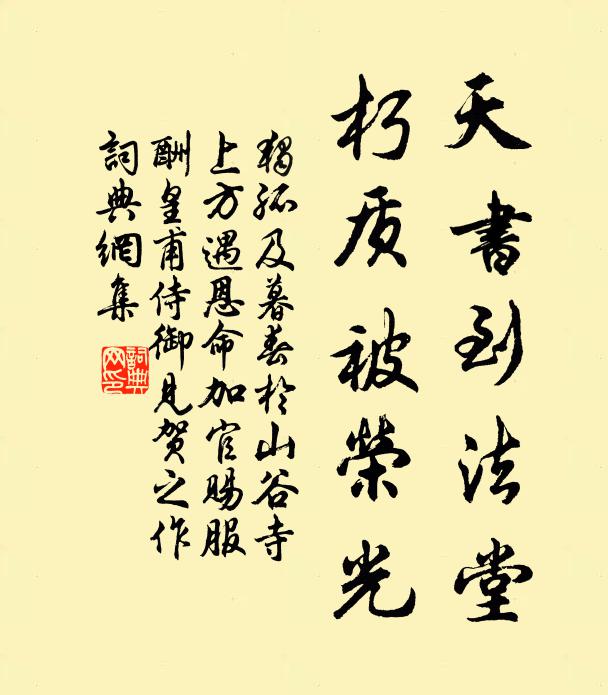 天書到法堂
朽质被榮光
獨孤及暮春於山谷寺
上方遇恩命加官賜服
酬皇甫侍御見贺之作
詞典網集
詞典
网印